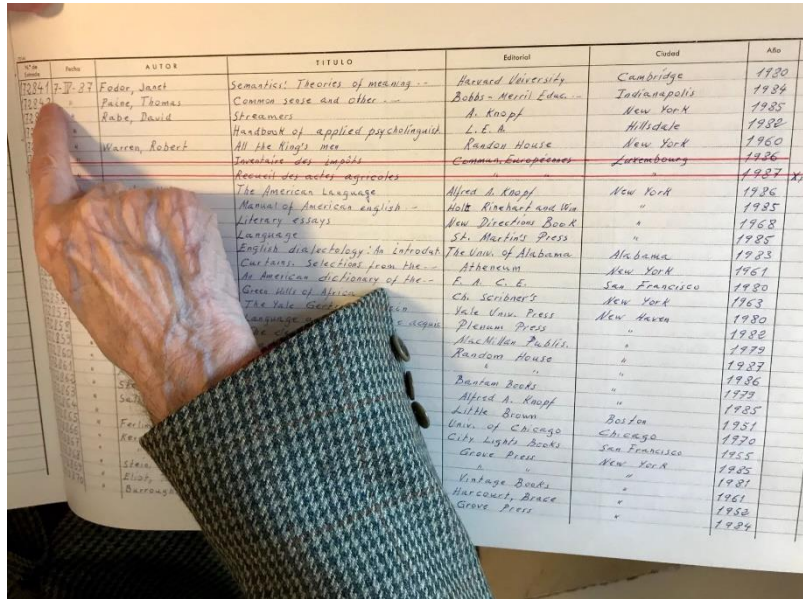 N.º de Entrada Fecha AUTOR TITULO Editorial Ciudad Año
72841 7-IV-87 Fodor, Janet Semantics: Theories of meaning -- Harvard University Cambridge 1980
72842 " Paine, Thomas Common sense and other -- Bobbs-Merril Educ. -- Indianapolis 1984
" Rabe, David Streamers A. Knopf New York 1985
Handbook of applied psycholinguist. L. E. A. Hillsdale 1982
" Warren, Robert All the King's men Randon House New York 1960
Inventaire des impôts Commun. Européennes Luxembourg 1986
Recueil des actes agricoles " " " 1987
The American Language Alfred A. Knopf New York 1986
Manual of American english - Holt Rinehart and Win " 1985
Literary essays New Directions Book " 1968
Language St. Martin's Press " 1985
English dialectology: An introduct. The Univ. of Alabama Alabama 1983
Curtains. Selections from the -- Atheneum New York 1961
An American dictionary of the -- F. A. C. E. San Francisco 1980
Green Hills of Africa Ch. Scribner's New York 1963
The Yale Yale Univ. Press New Haven 1980
Language acquis Plenum Press " 1982
MacMillan Publis. " 1979
Random House " 1987
" " 1986
Bantam Books " 1979
Alfred A. Knopf " 1985
Little Brown Boston 1951
Univ. of Chicago Chicago 1970
City Lights Books San Francisco 1955
Grove Press New York 1985
" " " 1981
Stein Vintage Books " 1961
Eliot, Harcourt, Brace " 1952
Burroughs Grove Press " 1984